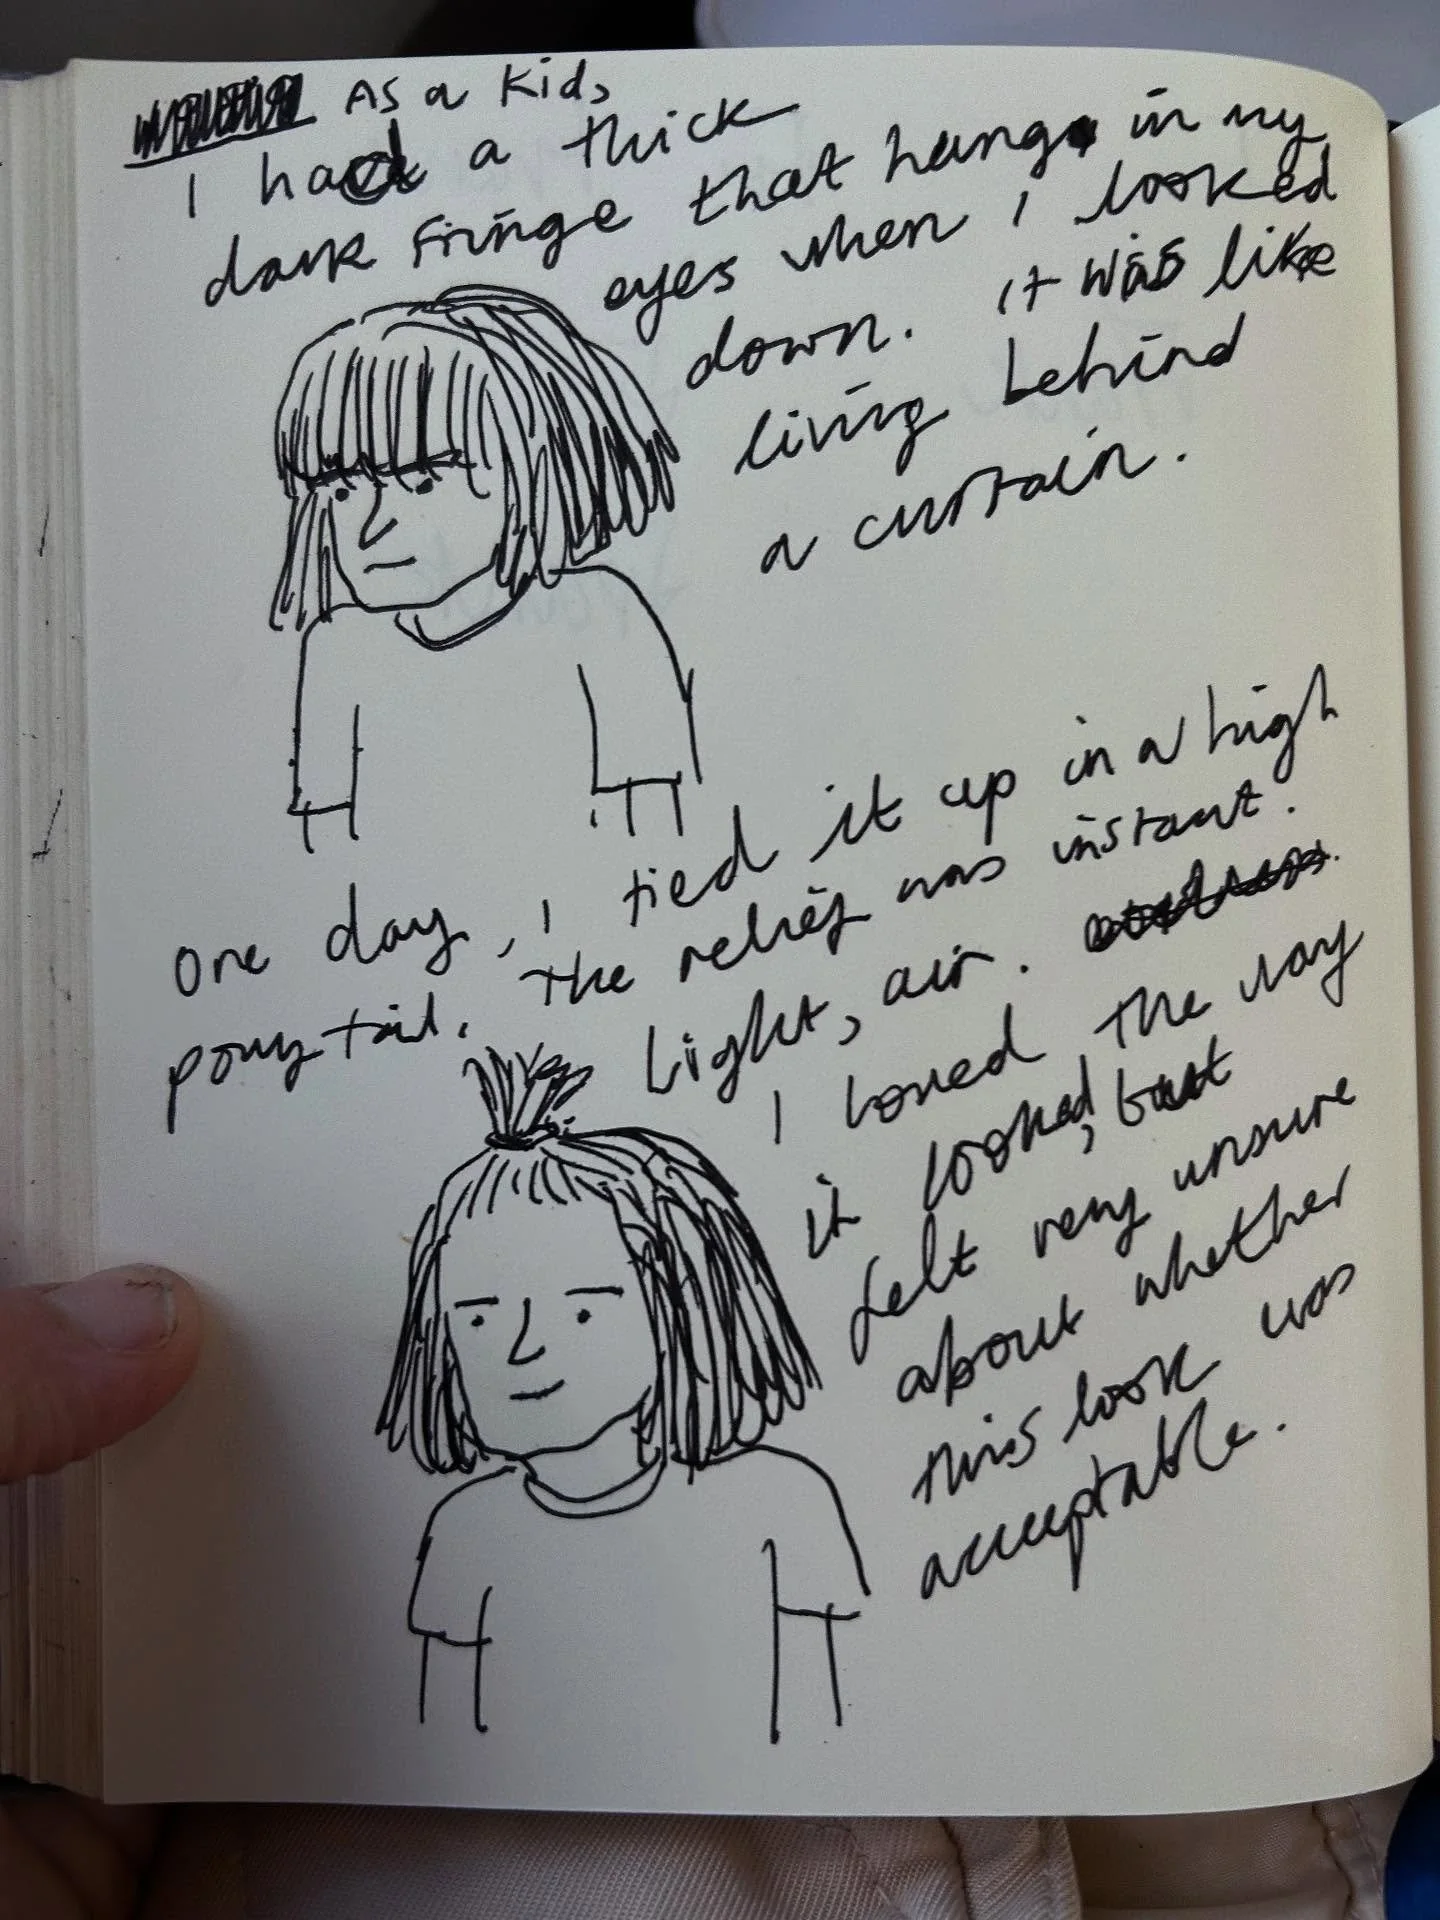 As a kid,
I had a thick
dark fringe that hung in my
eyes when I looked
down. It was like
living behind
a curtain.
One day, I tied it up in a high
pony tail. The relief was instant.
Light, air.
I loved the way
it looked, but
felt very unsure
about whether
this look was
acceptable.